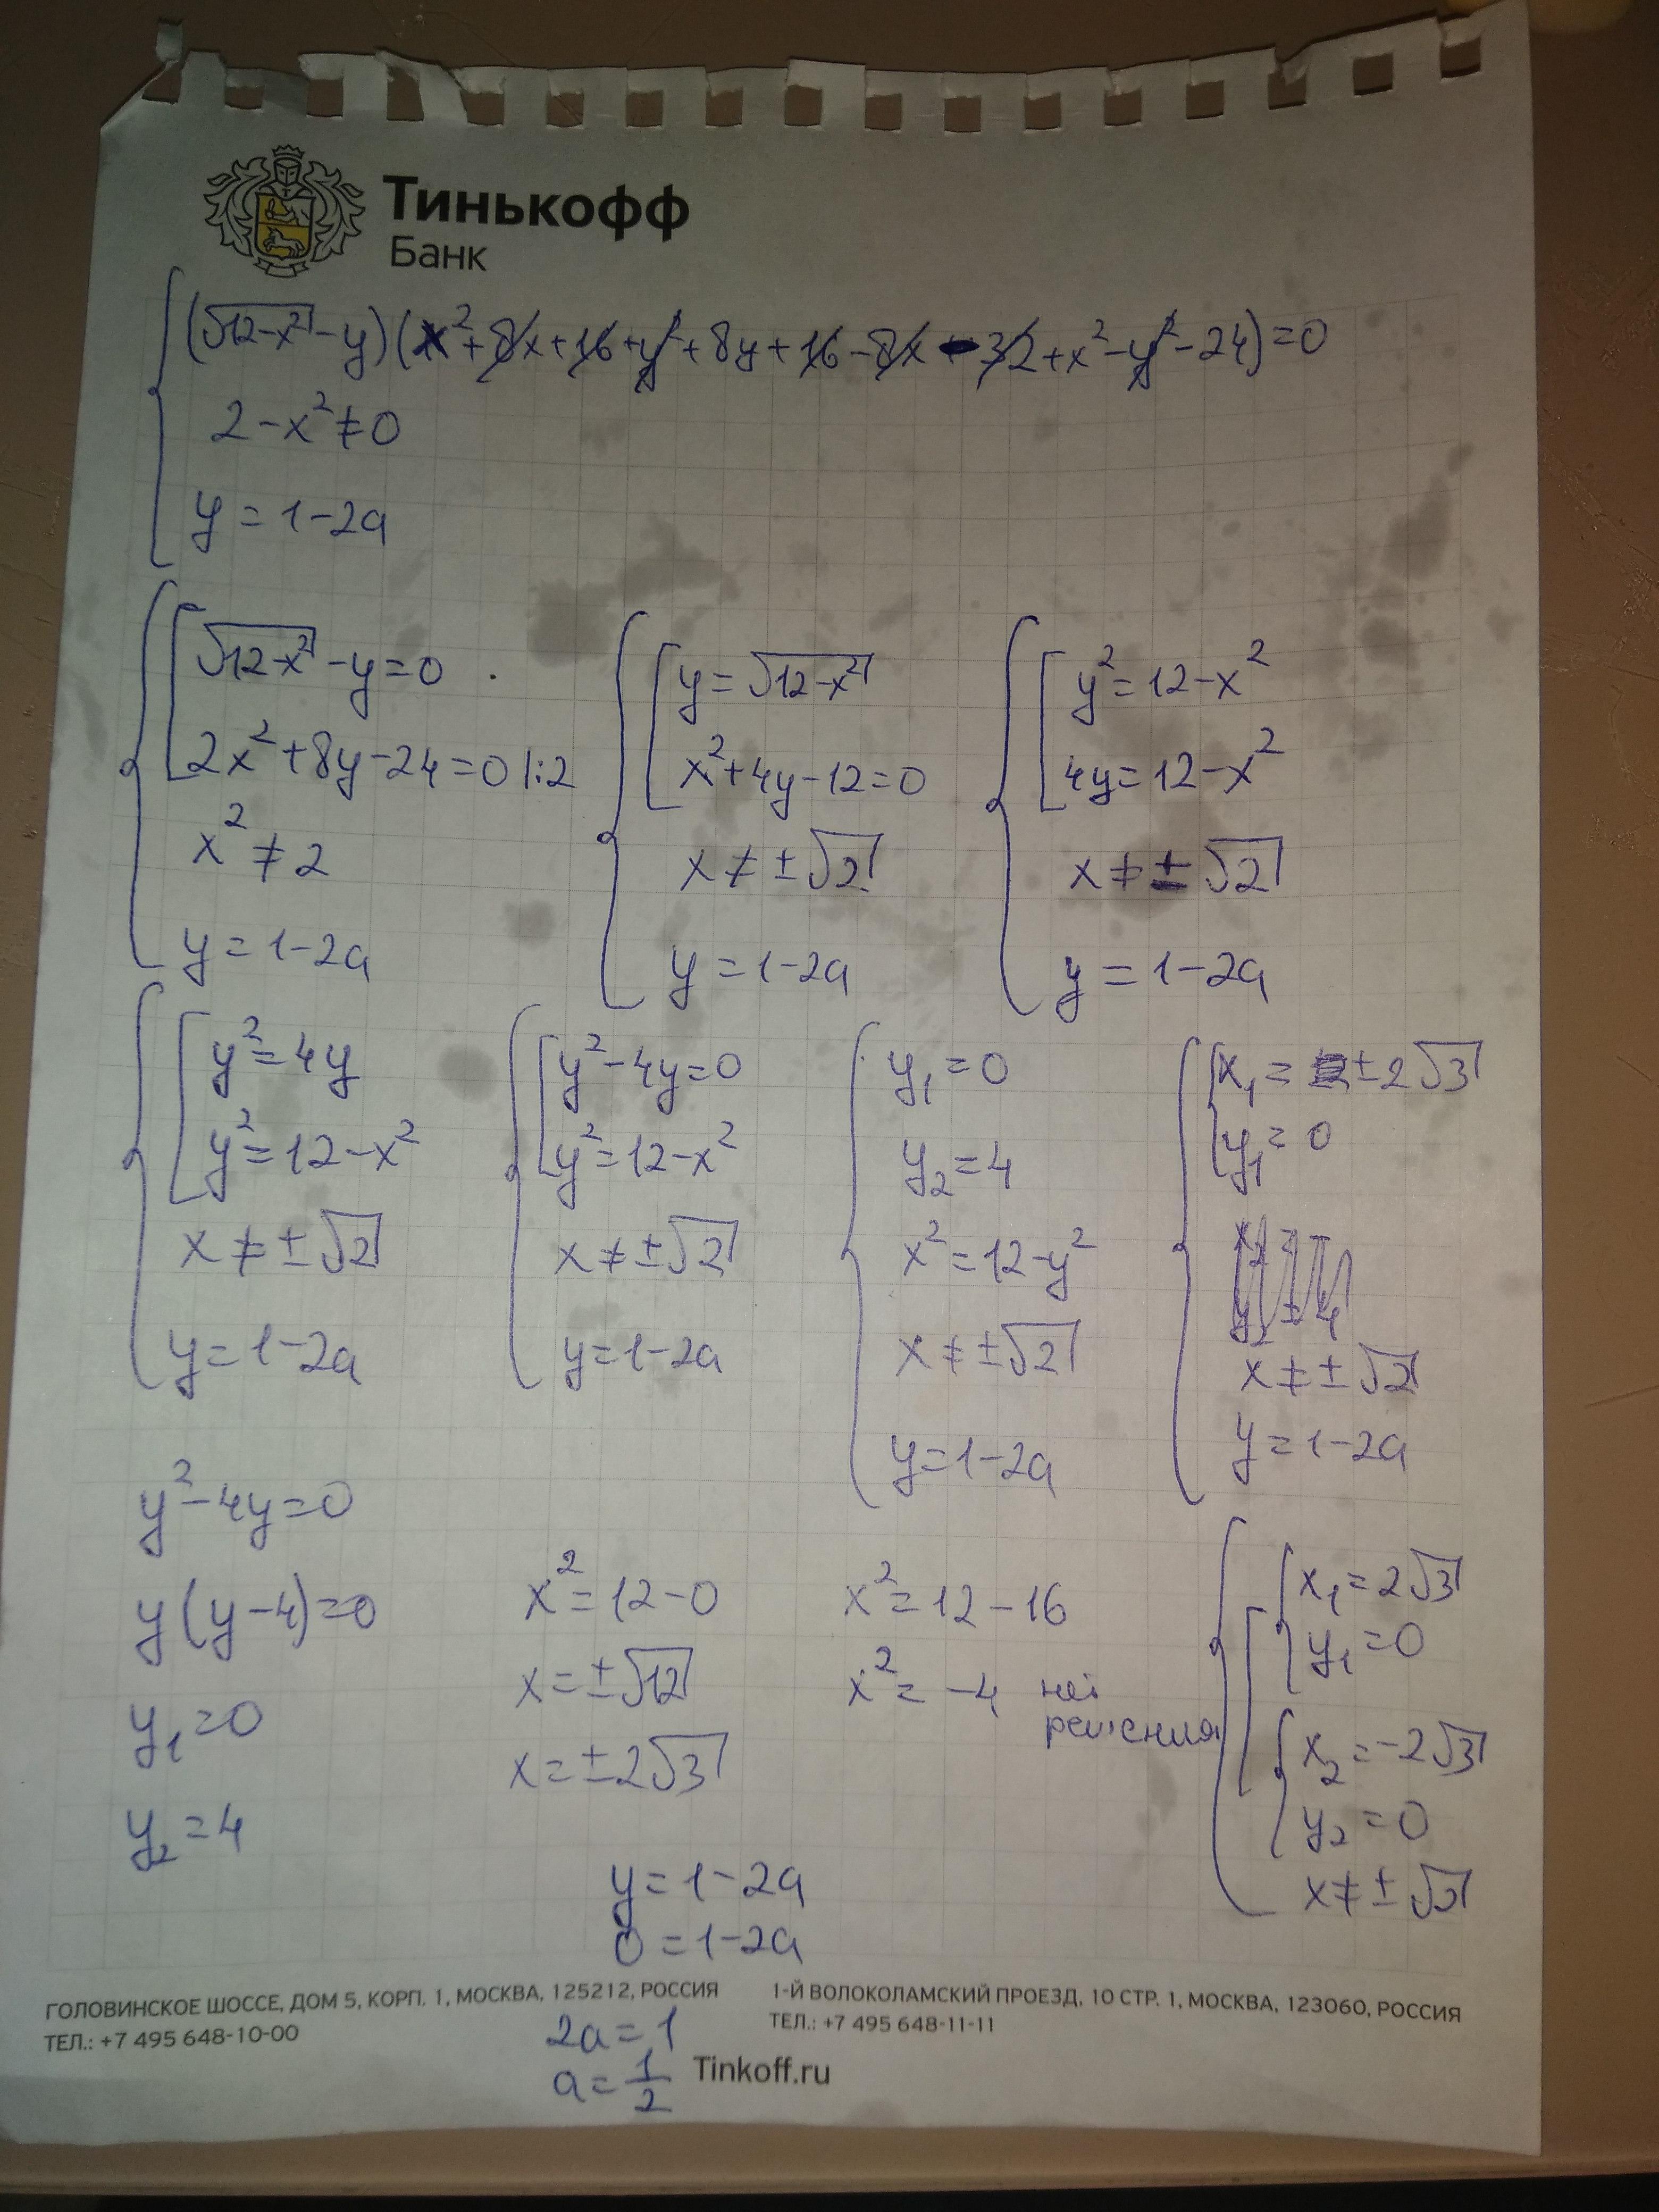 Тинькофф
Банк
(√12-x² - y)(x² + 8x + 16 + y² + 8y + 16 - 8x - 32 + x² - y² - 24) = 0
2 - x² ≠ 0
y = 1 - 2a
√12-x² - y = 0
2x² + 8y - 24 = 0 |:2
x² ≠ 2
y = 1 - 2a
y = √12-x²
x² + 4y - 12 = 0
x ≠ ±√2
y = 1 - 2a
y² = 12 - x²
4y = 12 - x²
x ≠ ±√2
y = 1 - 2a
y² = 4y
y² = 12 - x²
x ≠ ±√2
y = 1 - 2a
y² - 4y = 0
y² = 12 - x²
x ≠ ±√2
y = 1 - 2a
y₁ = 0
y₂ = 4
x² = 12 - y²
x ≠ ±√2
y = 1 - 2a
x₁ = ±2√3
y₁ = 0
x ≠ ±√2
y = 1 - 2a
y² - 4y = 0
y(y - 4) = 0
y₁ = 0
y₂ = 4
x² = 12 - 0
x = ±√12
x = ±2√3
x² = 12 - 16
x² = -4 нет
решения
x₁ = 2√3
y₁ = 0
x₂ = -2√3
y₂ = 0
x ≠ ±√2
y = 1 - 2a
0 = 1 - 2a
2a = 1
a = 1/2
ГОЛОВИНСКОЕ ШОССЕ, ДОМ 5, КОРП. 1, МОСКВА, 125212, РОССИЯ
ТЕЛ.: +7 495 648-10-00
1-Й ВОЛОКОЛАМСКИЙ ПРОЕЗД, 10 СТР. 1, МОСКВА, 123060, РОССИЯ
ТЕЛ.: +7 495 648-11-11
Tinkoff.ru